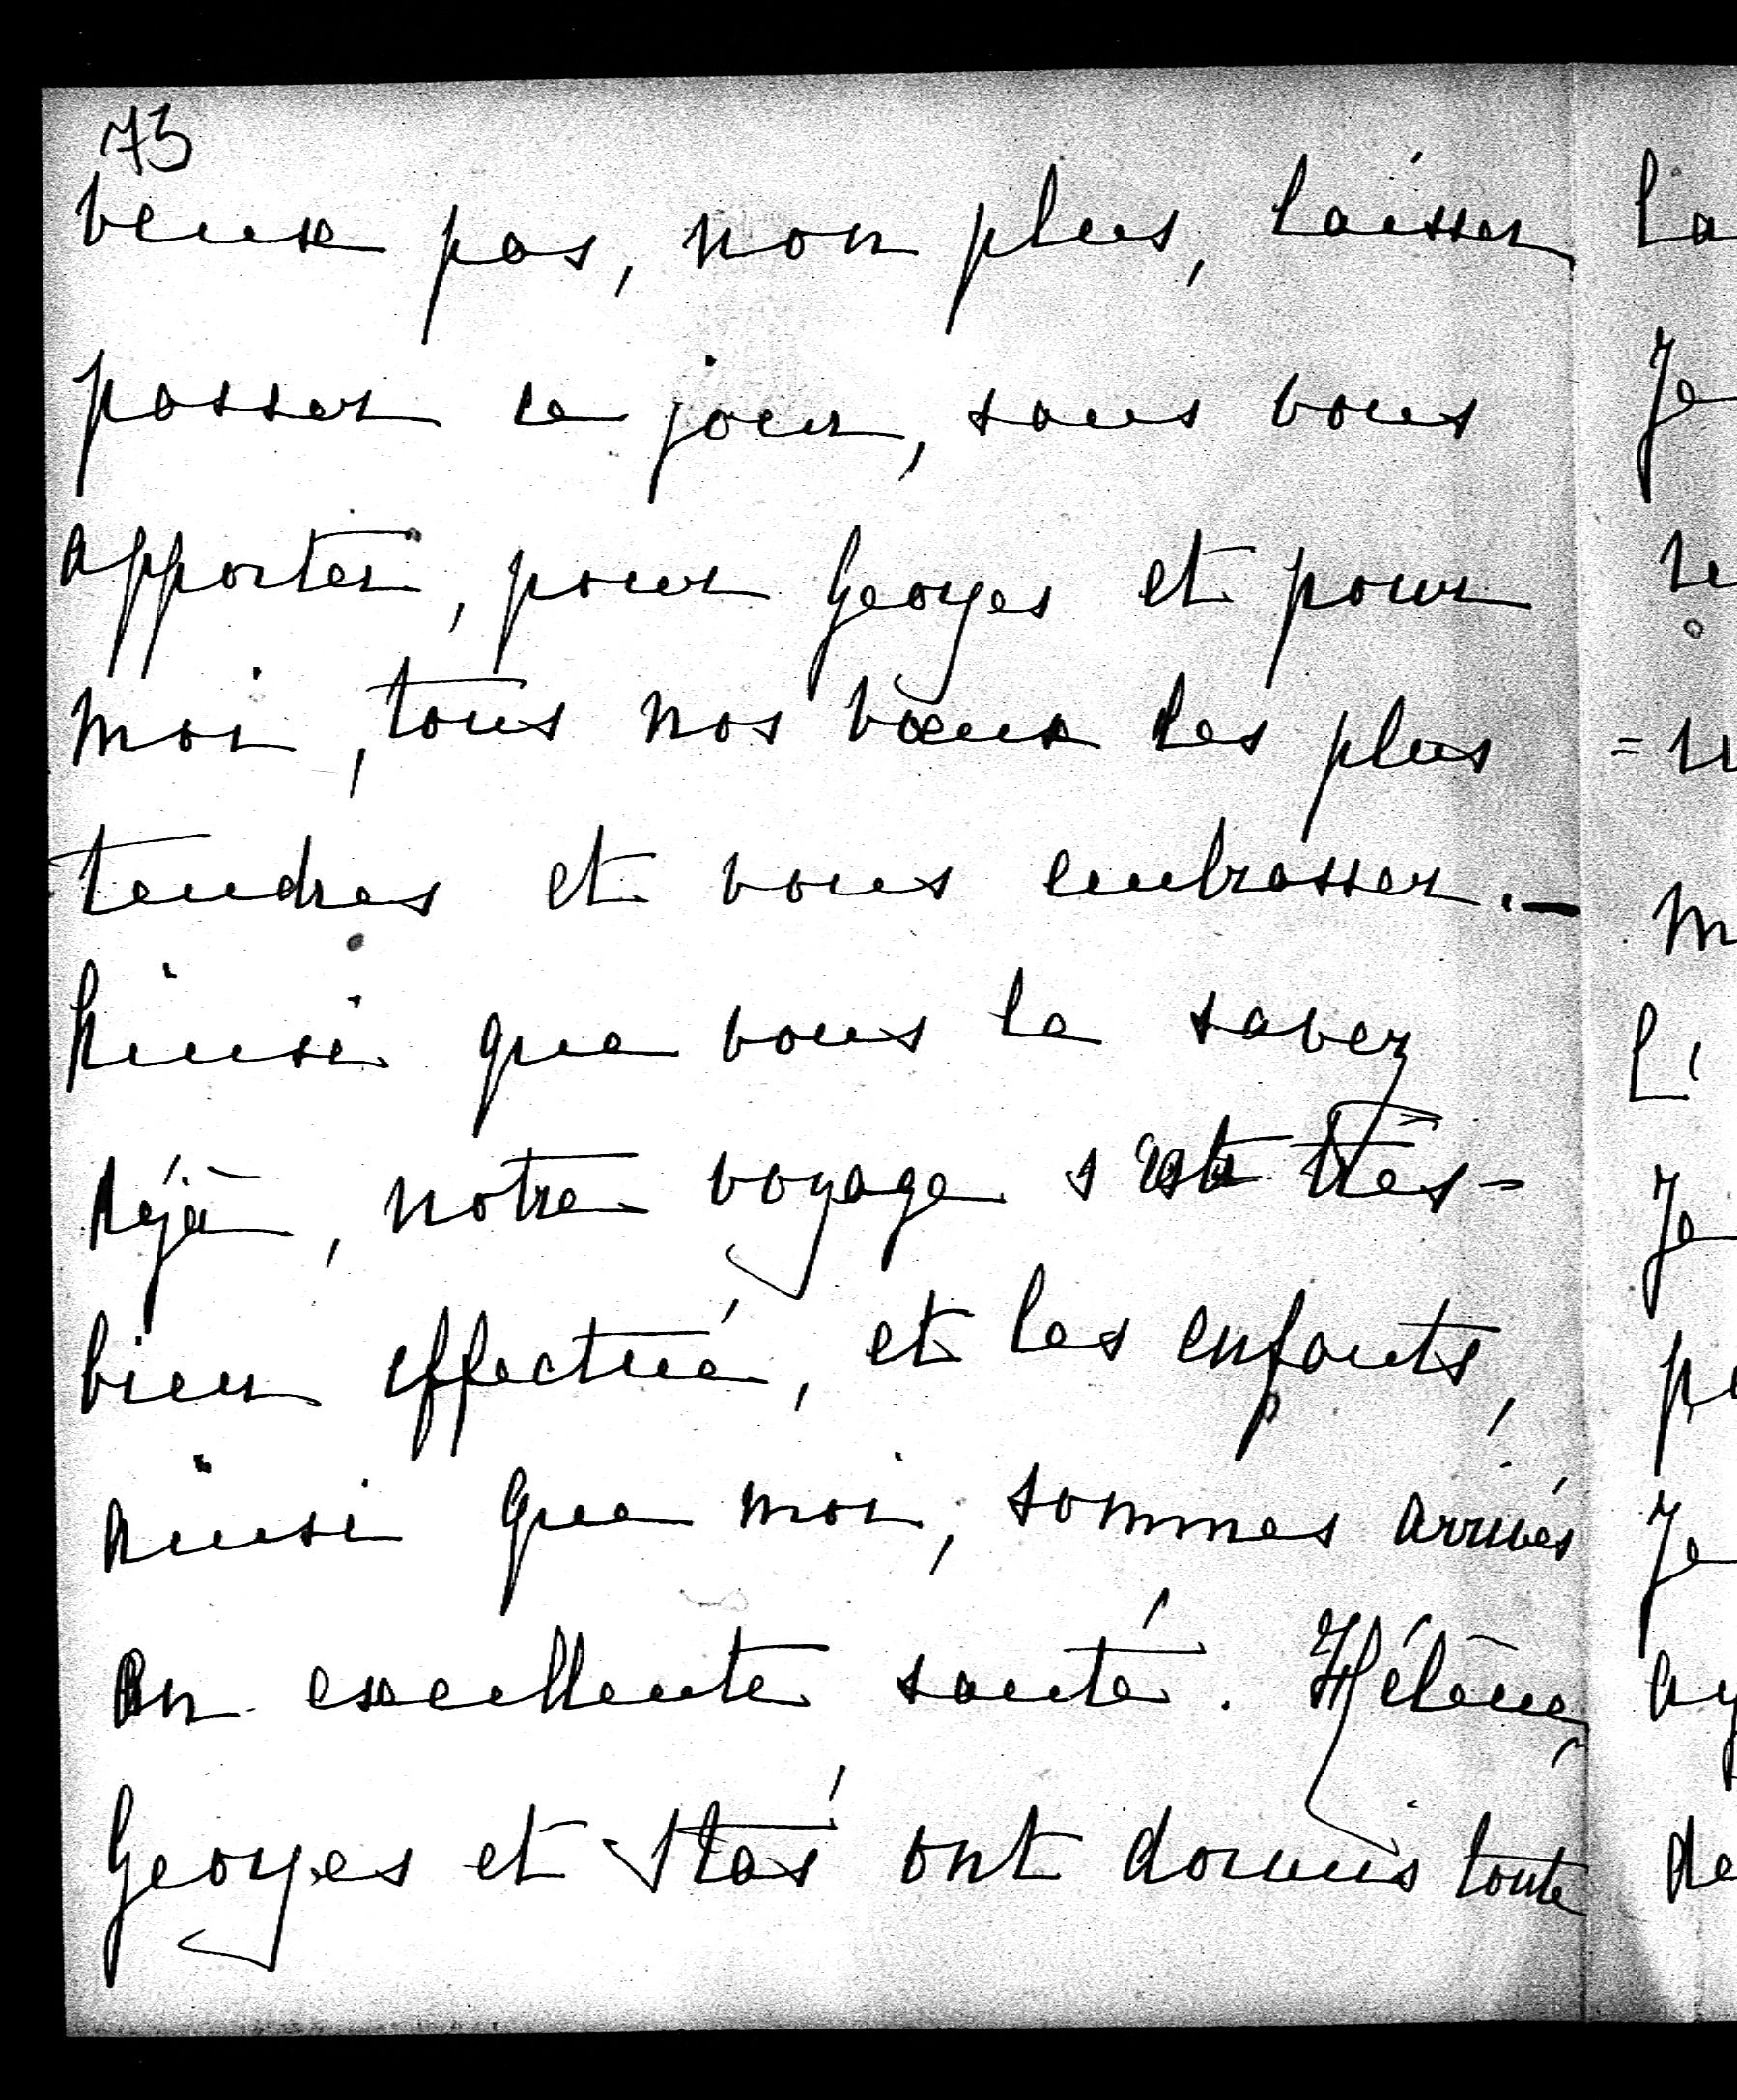 73
veux pas, non plus, laisser
passer ce jour, sans vous
apporter, pour Georges et pour
moi, tous nos vœux les plus
tendres et vous embrasser. —
Ainsi que vous le savez
déjà, notre voyage s'est très-
bien effectué, et les enfants,
ainsi que moi, sommes arrivés
en excellente santé. Hélène,
Georges et Stas ont dormis toute
la
Je
m
Je
Je
de